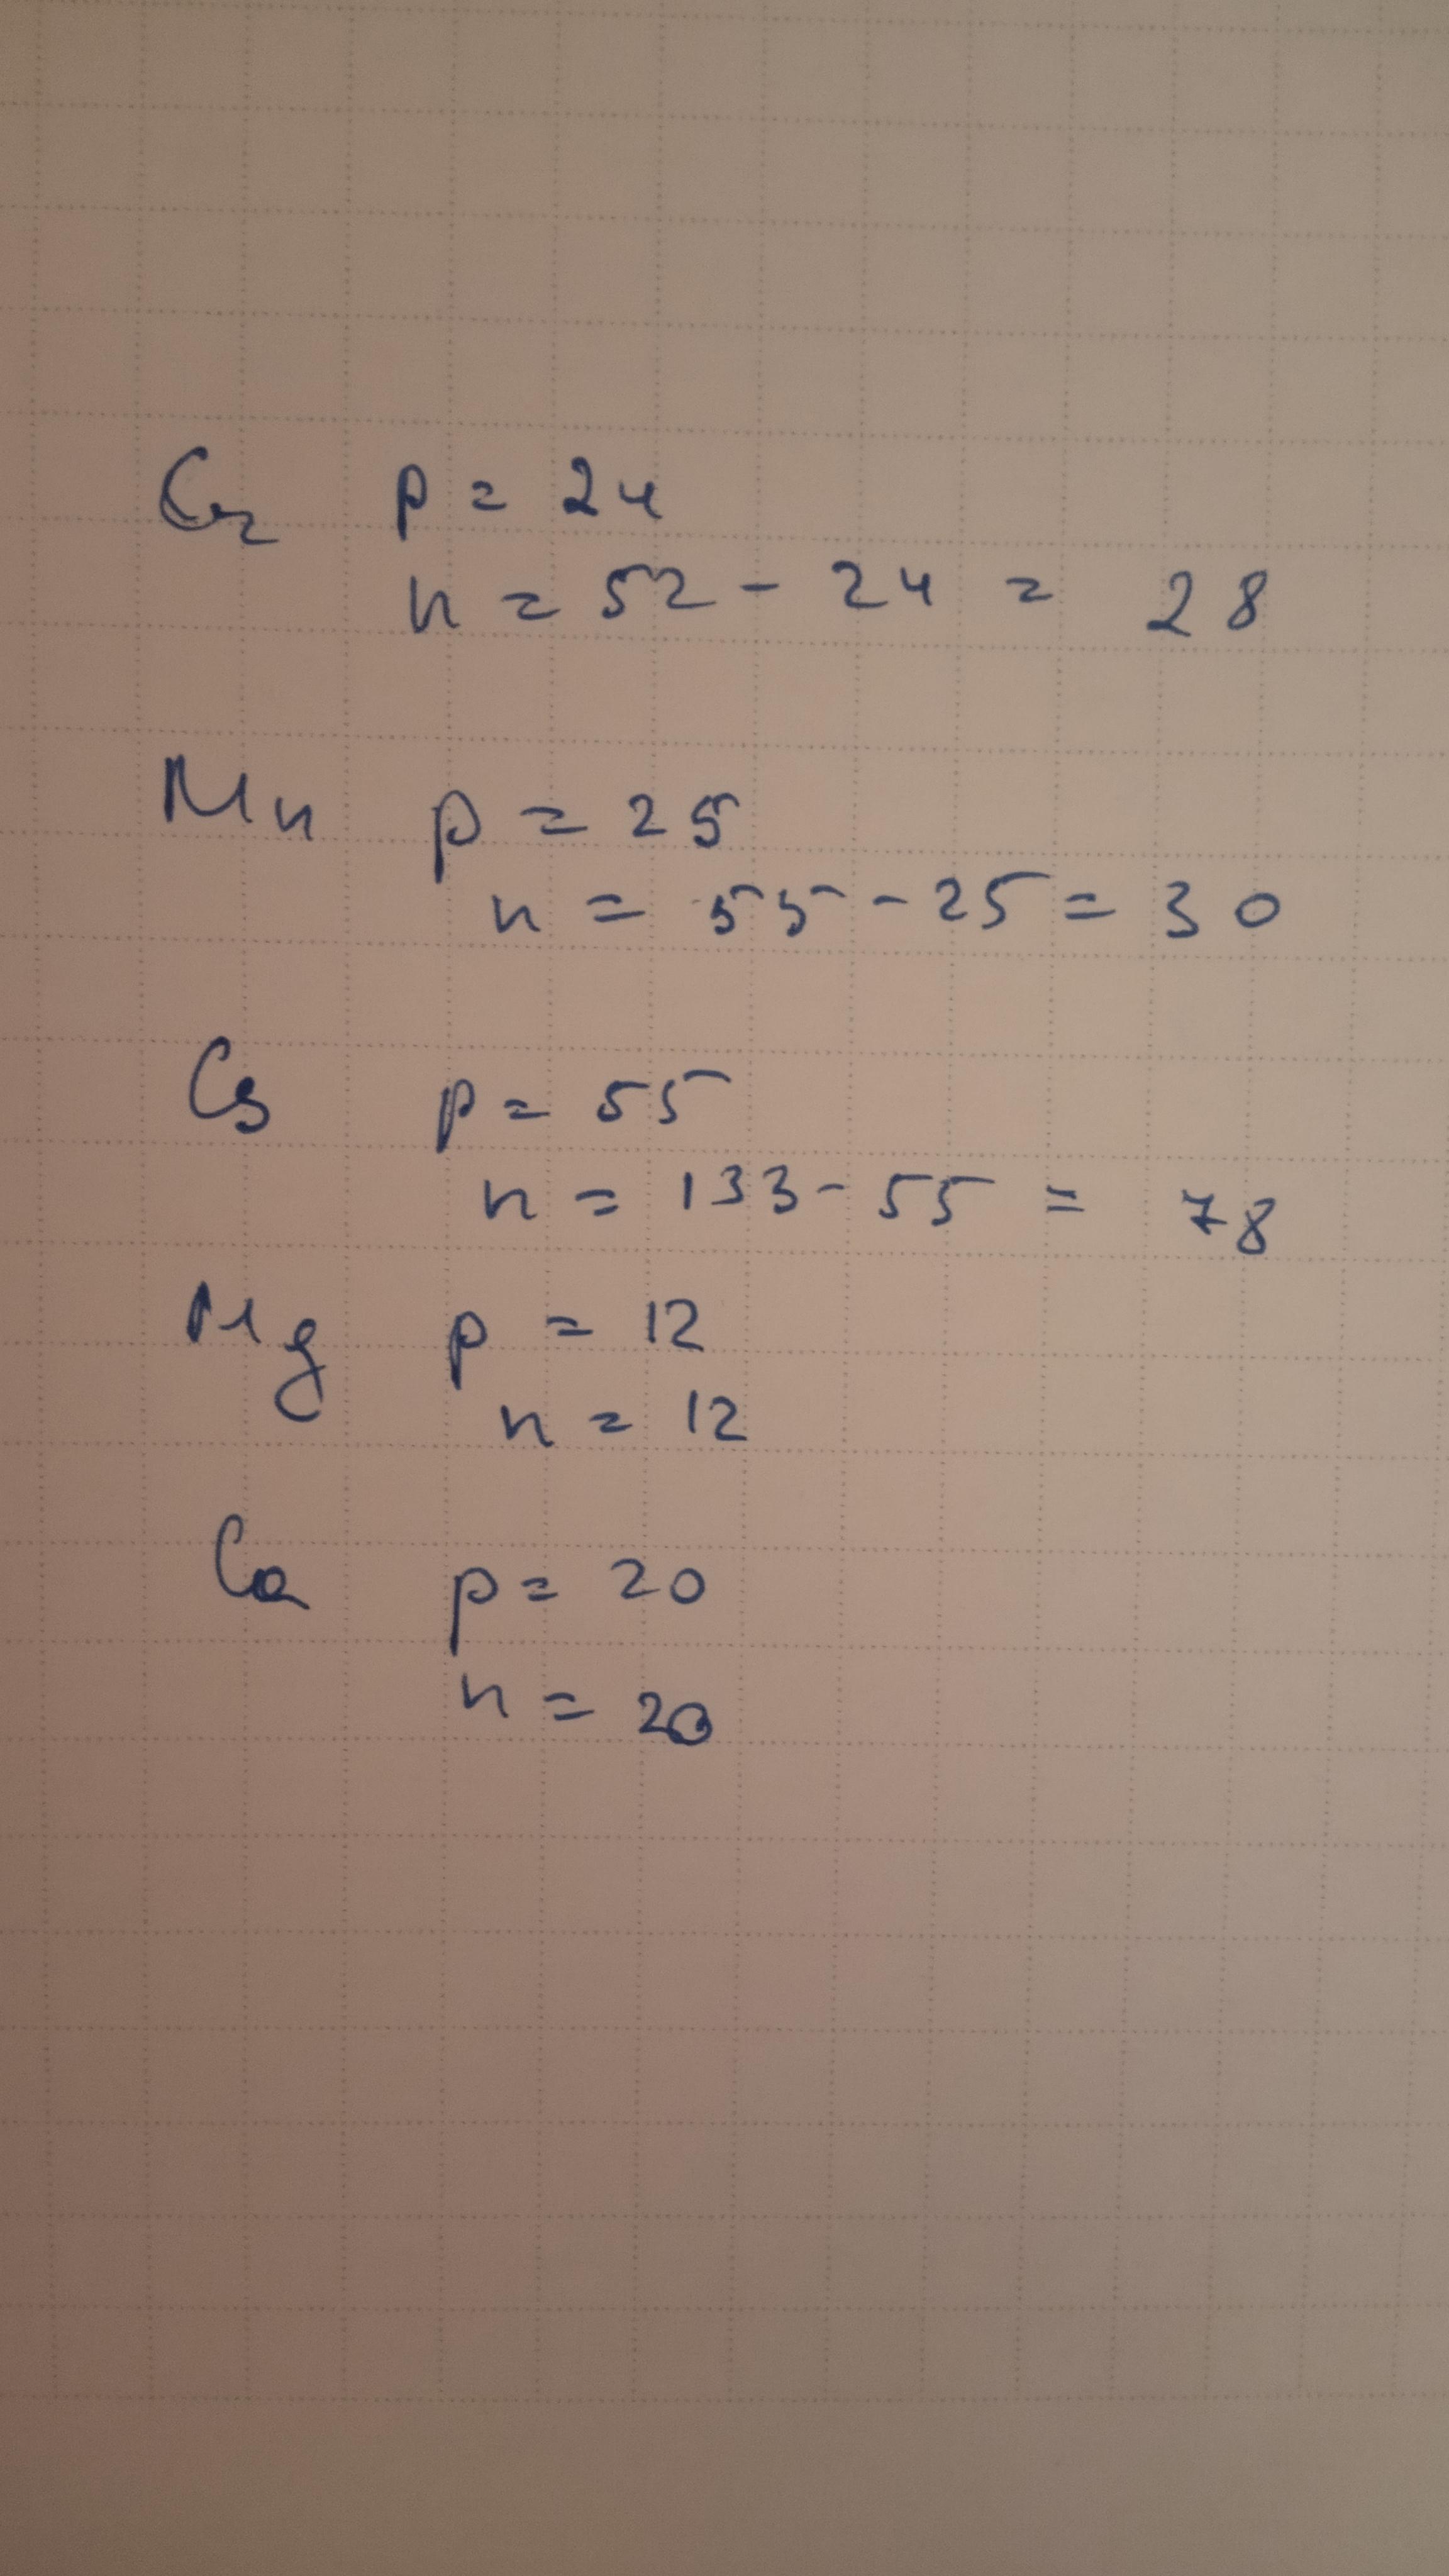 Cr p = 24
n = 52 - 24 = 28
Mn p = 25
n = 55 - 25 = 30
Cs p = 55
n = 133 - 55 = 78
Mg p = 12
n = 12
Ca p = 20
n = 20